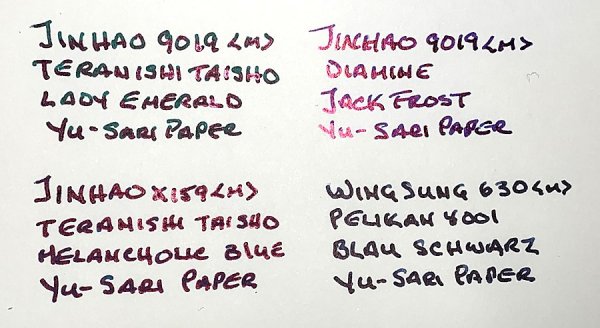 JINHAO 9019 <M>
TERANISHI TAISHO
LADY EMERALD
YU-SARI PAPER
JINHAO 9019 <M>
DIAMINE
JACK FROST
YU-SARI PAPER
JINHAO X159 <M>
TERANISHI TAISHO
MELANCHOLIC BLUE
YU-SARI PAPER
WING SUNG 630 <M>
PELIKAN 4001
BLAU SCHWARZ
YU-SARI PAPER